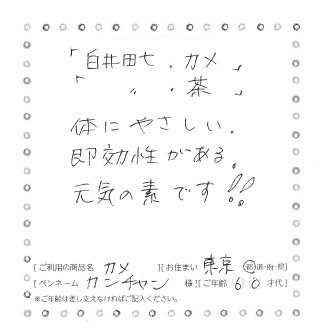 「白井田七 . カメ」
「 〃 . 茶」
体にやさしい.
即効性がある。
元気の素です!!
[ご利用の商品名 カメ ][お住まい 東京 都・道・府・県]
[ペンネーム カンチャン 様][ご年齢 60 才代]
※ご年齢は差し支えなければご記入ください。